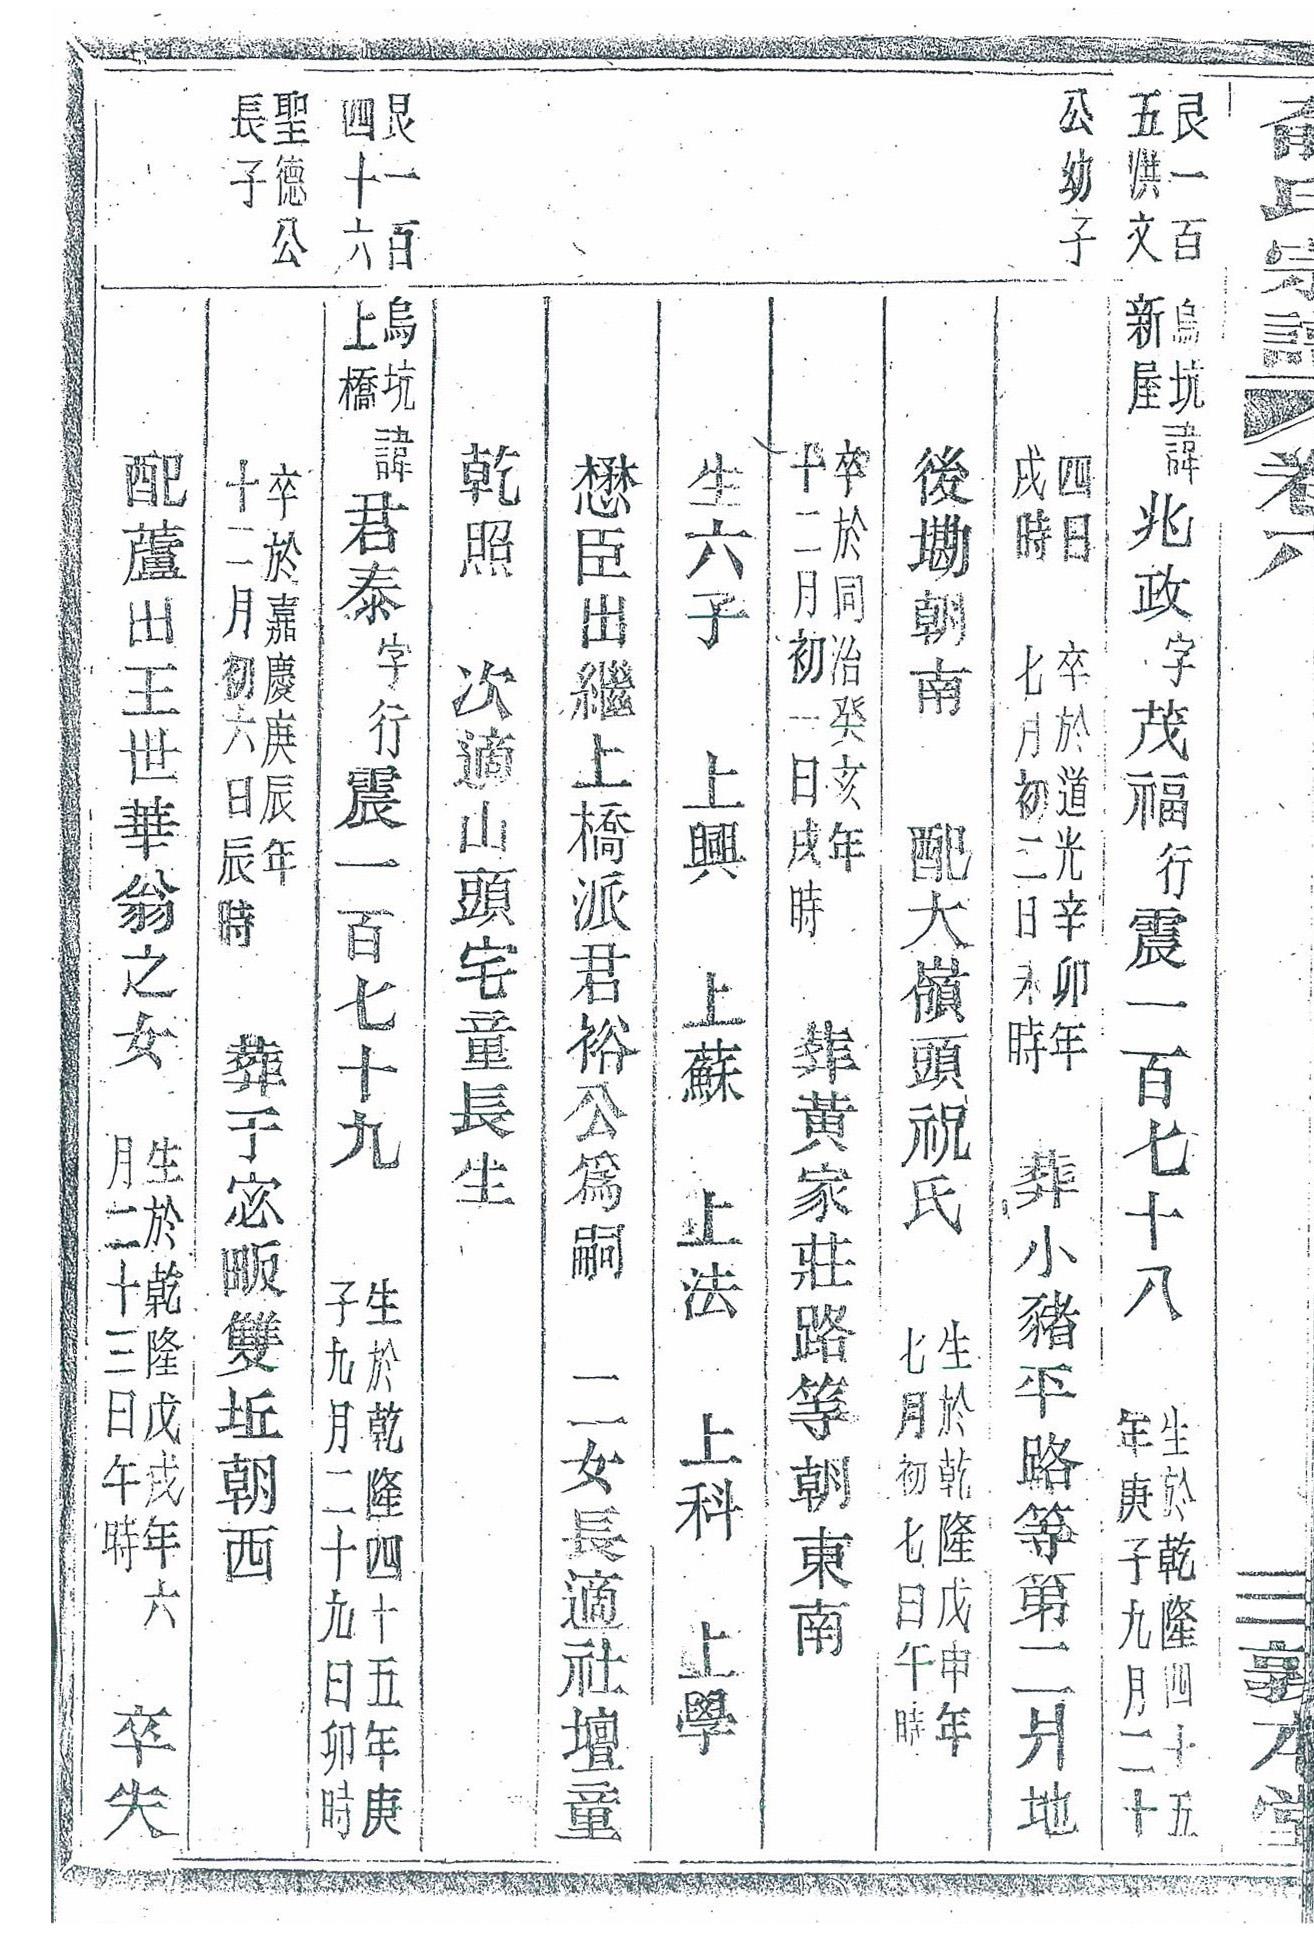 氏宗譜 卷六 三 敦本堂
艮一百
五洪文
公幼子
烏坑
新屋
諱兆政字茂福行震一百七十八 生於乾隆四十五
年庚子九月二十
四日
戌時 卒於道光辛卯年
七月初二日未時 葬小豬平路等第二爿地
後塝朝南 配大嶺頭祝氏 生於乾隆戊申年
七月初七日午時
卒於同治癸亥年
十二月初一日戌時 葬黃家莊路等朝東南
生六子 上興 上蘇 上法 上科 上學
懋臣出繼上橋派君裕公為嗣 二女長適社壇童
乾照 次適山頭宅童長生
艮一百
四十六
聖德公
長子
烏坑
上橋
諱君泰字 行震一百七十九 生於乾隆四十五年庚
子九月二十九日卯時
卒於嘉慶庚辰年
十二月初六日辰時 葬于宓畈雙坵朝西
配蘆出王世華翁之女 生於乾隆戊戌年六
月二十三日午時 卒失